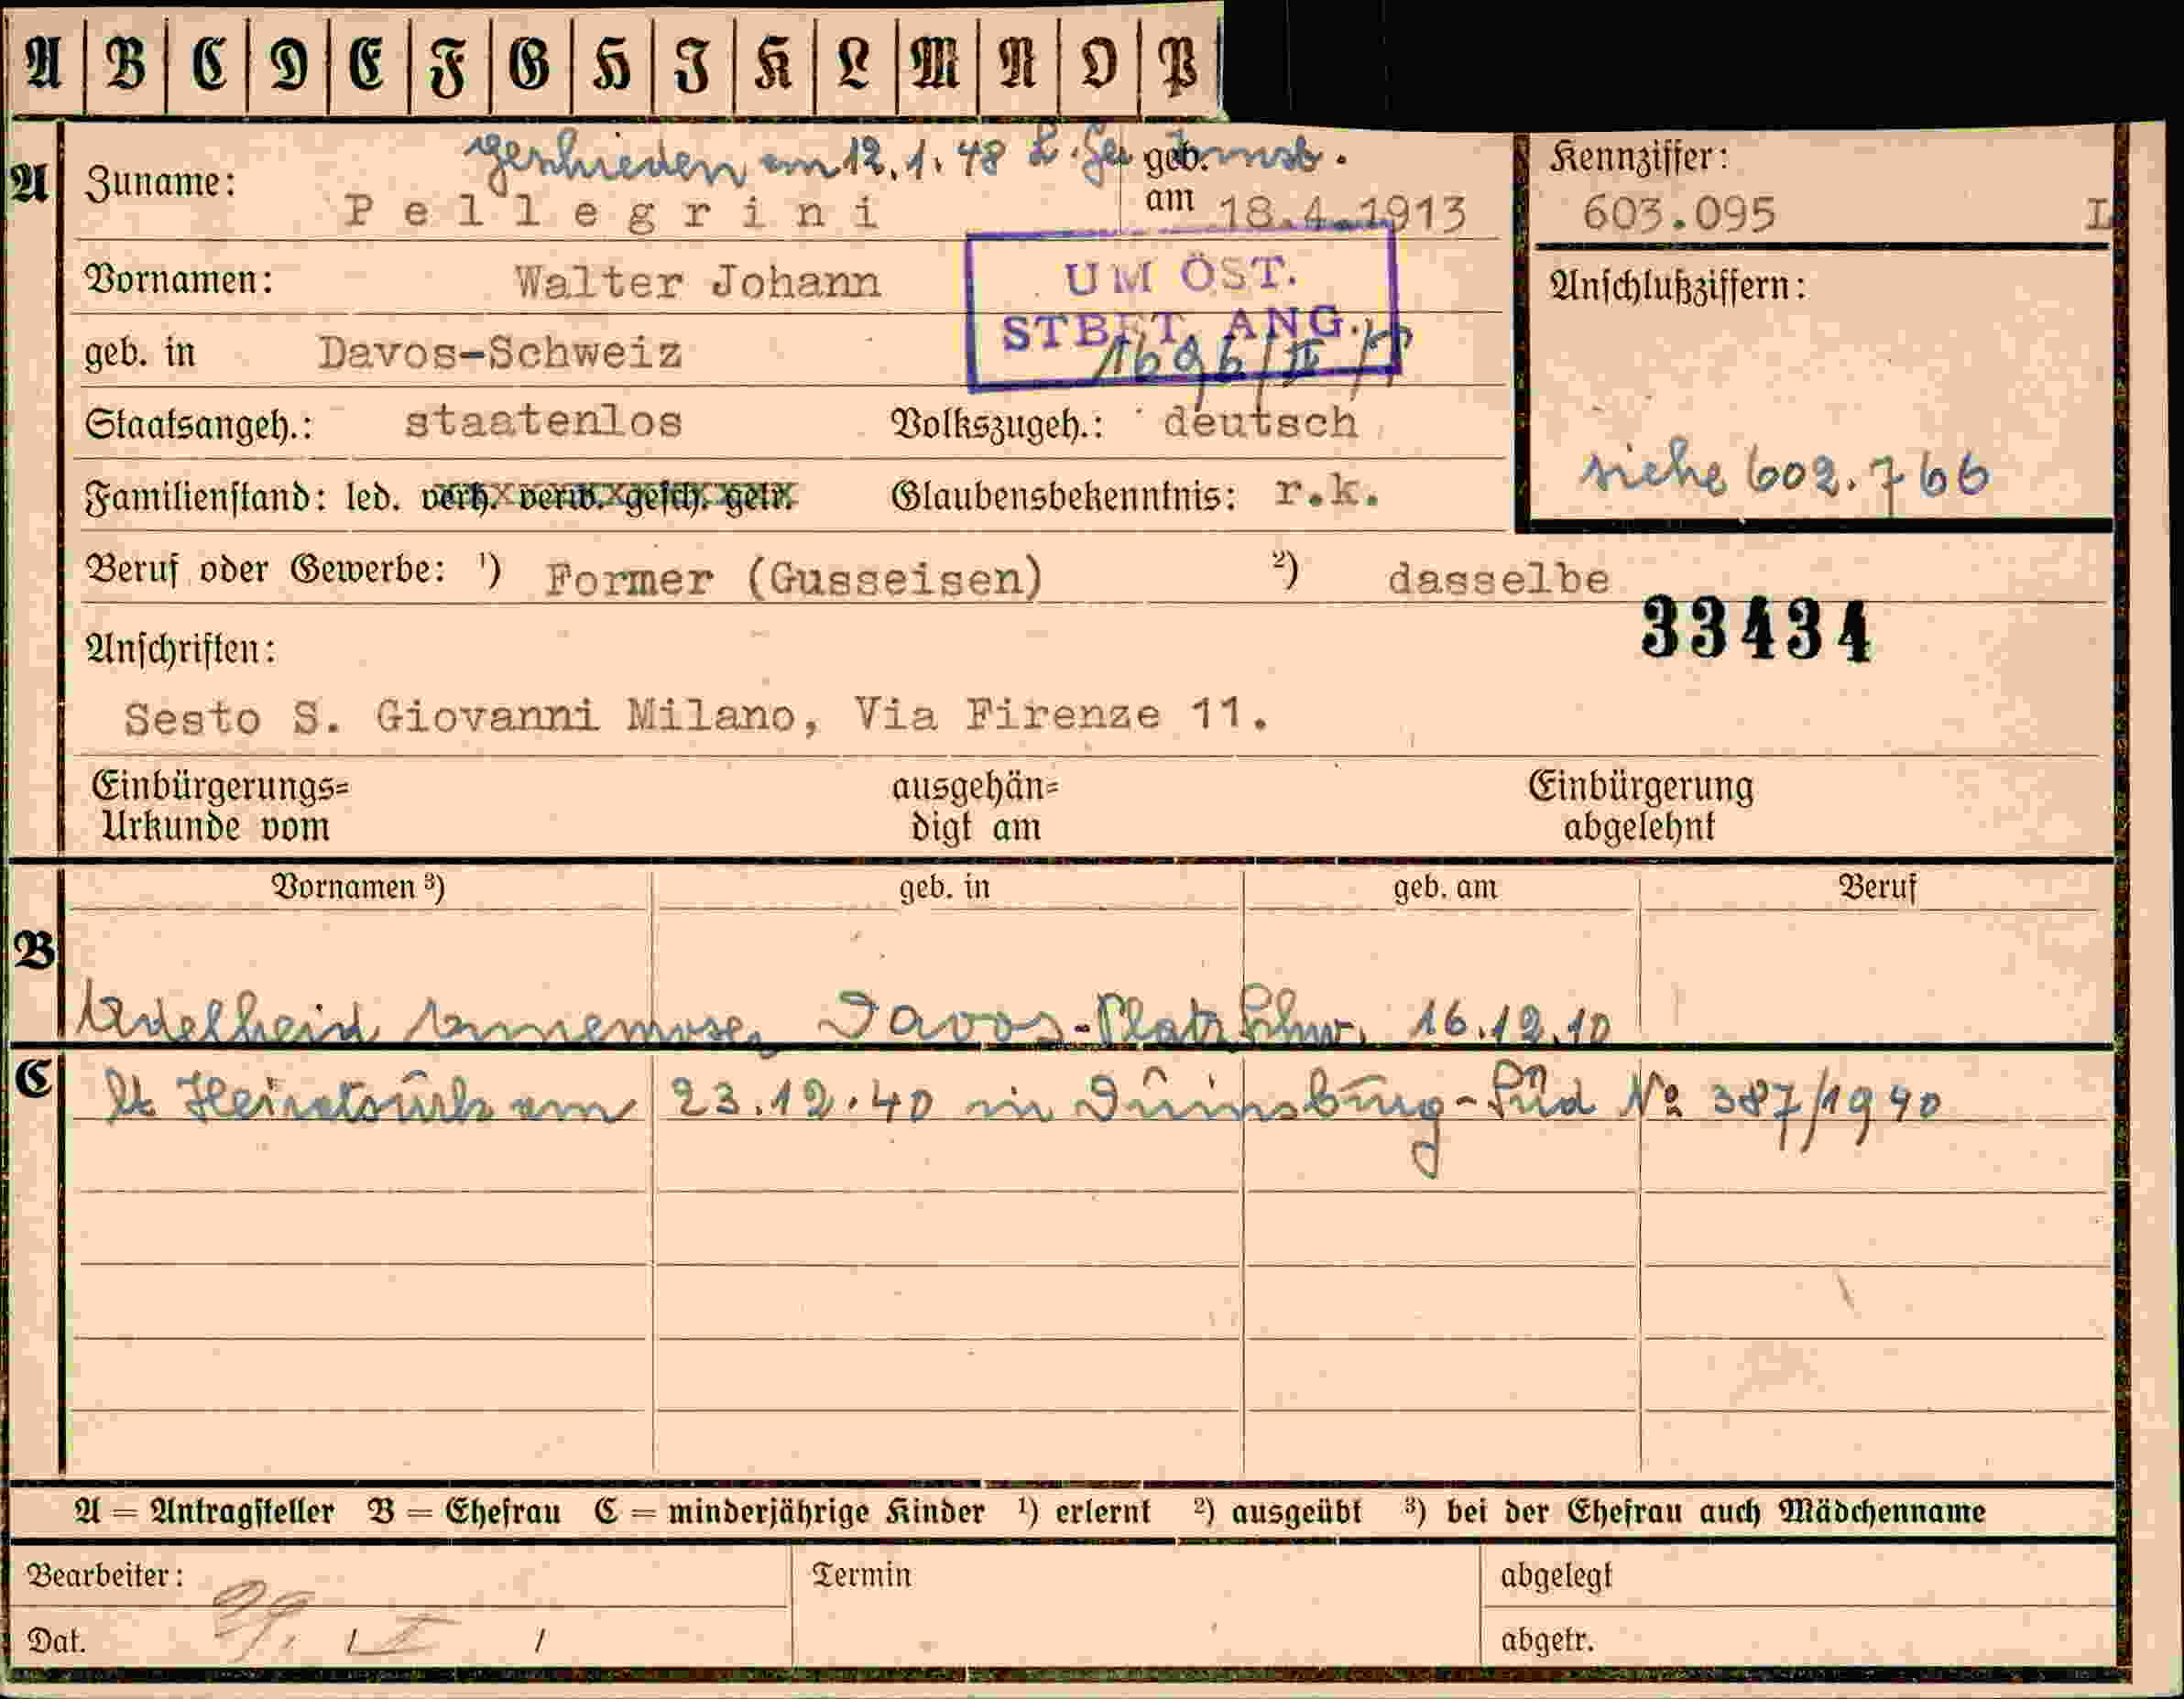 A B C D E F G H I K L M N O P
geschieden am 12.1.48 L. Ger. Innsb.
A Zuname: Pellegrini geb. am 18.4.1913
Kennziffer: 603.095 I
Vornamen: Walter Johann
UM ÖST. STBET. ANG.
1696/II/
Anschlußziffern:
geb. in Davos-Schweiz
Staatsangeh.: staatenlos Volkszugeh.: deutsch
siehe 602.766
Familienstand: led. verh. verw. gesch. getr. Glaubensbekenntnis: r.k.
Beruf oder Gewerbe: ¹) Former (Gusseisen) ²) dasselbe
33434
Anschriften:
Sesto S. Giovanni Milano, Via Firenze 11.
Einbürgerungs= Urkunde vom ausgehän= digt am Einbürgerung abgelehnt
Vornamen ³) geb. in geb. am Beruf
B
Adelheid Annemose, Davos-Platz Schw. 16.12.10
C
lt Heiratsurk am 23.12.40 in Duinsburg-Süd No 387/1940
A = Antragsteller B = Ehefrau C = minderjährige Kinder ¹) erlernt ²) ausgeübt ³) bei der Ehefrau auch Mädchenname
Bearbeiter: Termin abgelegt
Dat. abgetr.